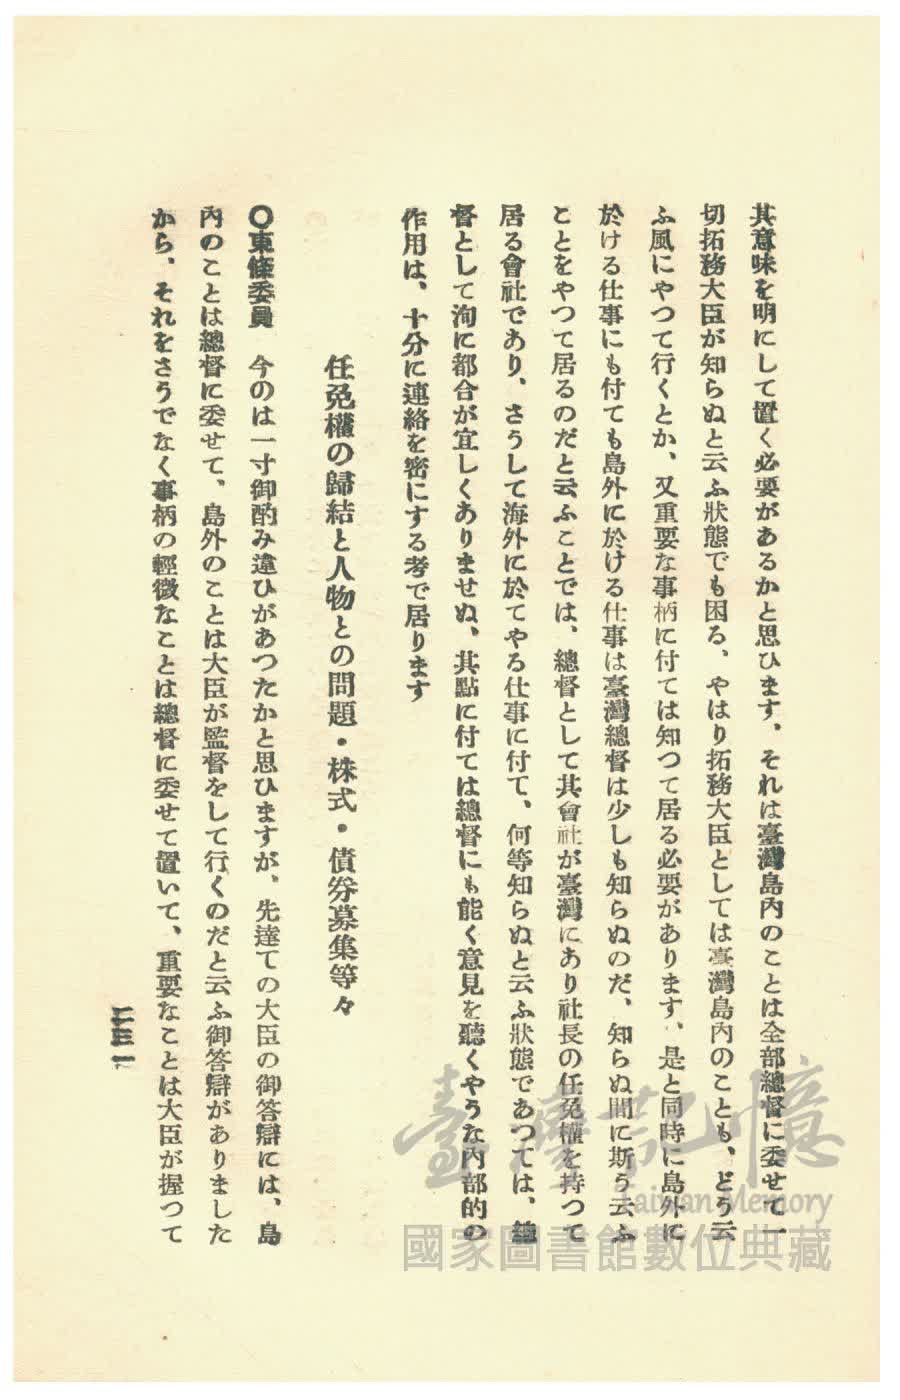 其意味を明にして置く必要があるかと思ひます、それは臺灣島內のことは全部總督に委せて一
切拓務大臣が知らぬと云ふ狀態でも困る、やはり拓務大臣としては臺灣島內のことも、どう云
ふ風にやつて行くとか、又重要な事柄に付ては知つて居る必要があります、是と同時に島外に
於ける仕事にも付ても島外に於ける仕事は臺灣總督は少しも知らぬのだ、知らぬ間に斯う云ふ
ことをやつて居るのだと云ふことでは、總督として其會社が臺灣にあり社長の任免權を持つて
居る會社であり、さうして海外に於てやる仕事に付て、何等知らぬと云ふ狀態であつては、總
督として洵に都合が宜しくありませぬ、其點に付ては總督にも能く意見を聽くやうな內部的の
作用は、十分に連絡を密にする考で居ります
任免權の歸結と人物との問題・株式・債券募集等々
〇東條委員　今のは一寸御酌み違ひがあつたかと思ひますが、先達ての大臣の御答辯には、島
內のことは總督に委せて、島外のことは大臣が監督をして行くのだと云ふ御答辯がありました
から、それをさうでなく事柄の輕微なことは總督に委せて置いて、重要なことは大臣が握つて
二三一
臺灣記憶
Taiwan Memory
國家圖書館數位典藏